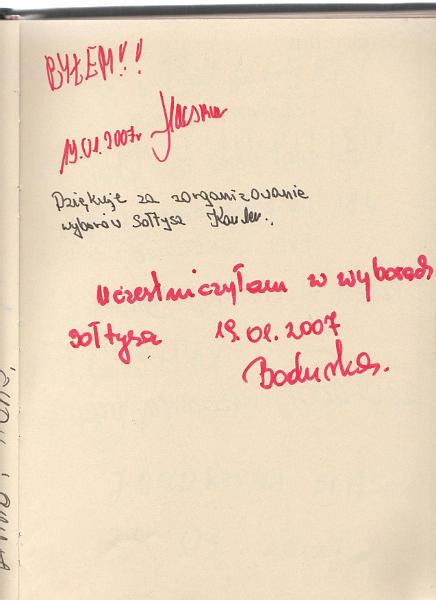 BYŁEM!!
19.01.2007r
Dziękuje za zorganizowanie
wyborów Sołtysa
Uczestniczyłam w wyborach
sołtysa 19.01.2007